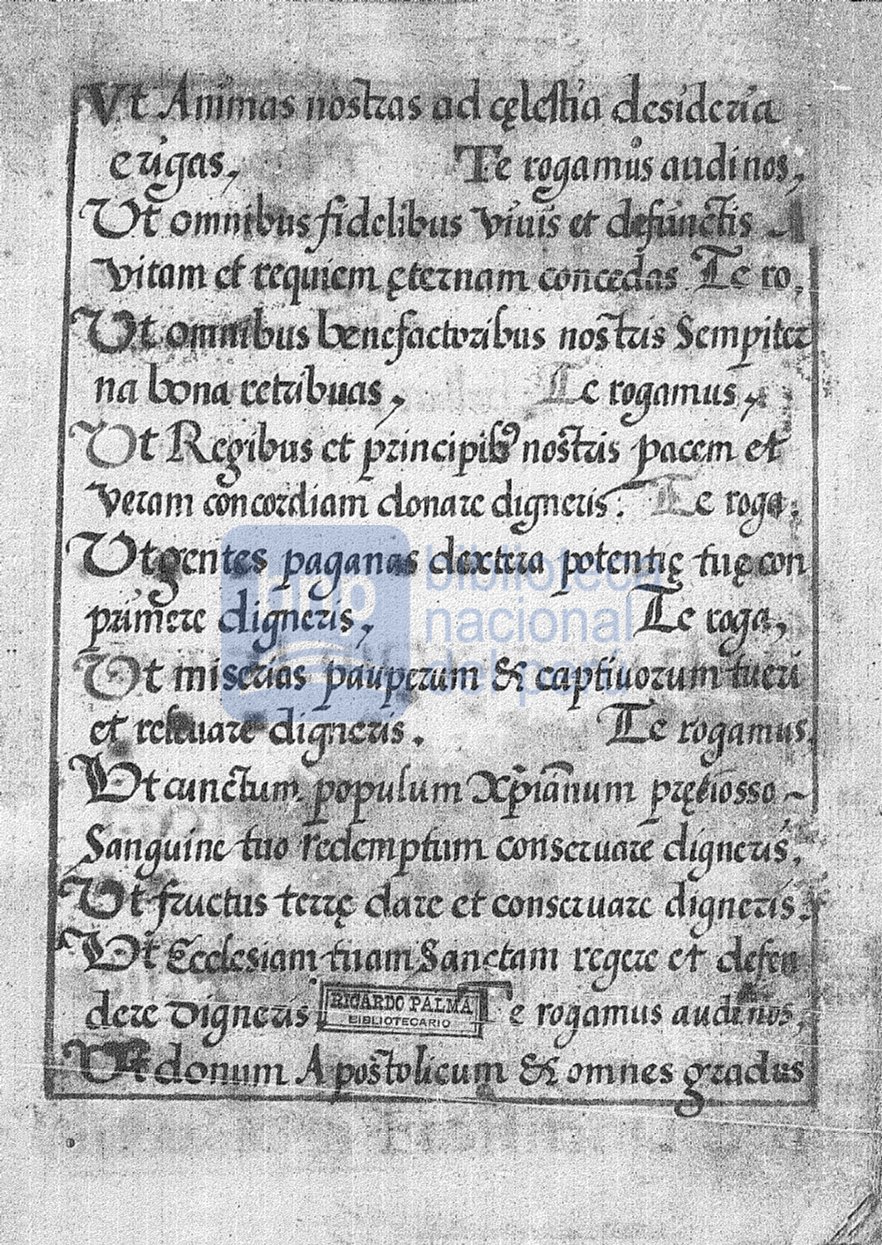 Vt Animas nostras ad cęlestia desideria
erigas, Te rogamus audi nos,
Vt omnibus fidelibus viuis et defunctis
vitam et requiem ęternam concedas Te ro,
Vt omnibus benefactoribus nostris Sempiter
na bona retribuas, Te rogamus,
Vt Regibus et principib⁹ nostris pacem et
veram concordiam donare digneris. Te roga.
Vt gentes paganas dextera potentię tuę con
primere digneris, Te roga,
Vt miserias pauperum & captiuorum tueri
et releuare digneris. Te rogamus.
Vt cunctum populum Xp̄ianum pretiosso
Sanguine tuo redemptum conseruare digneris.
Vt fructus terrę dare et conseruare digneris.
Vt Ecclesiam tuam Sanctam regere et defen
dere digneris Te rogamus audi nos,
RICARDO PALMA
BIBLIOTECARIO
Vt donum Apostolicum & omnes gradus
bnp biblioteca
nacional
del perú